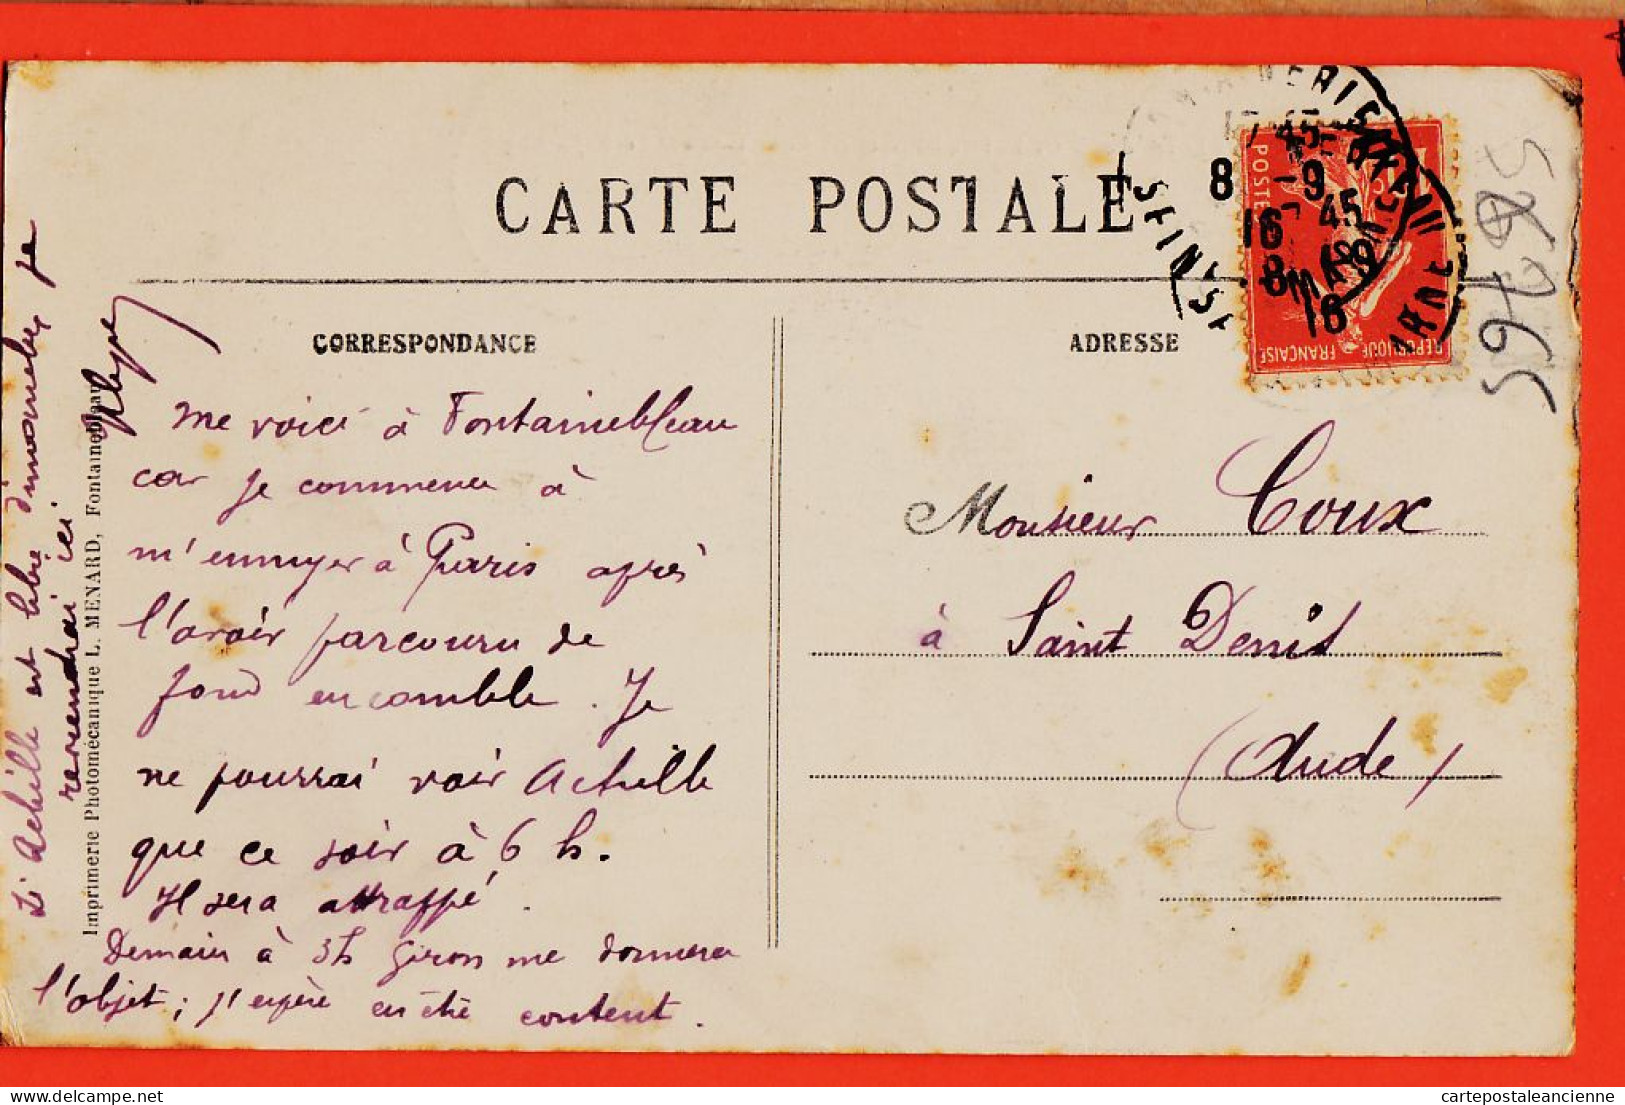 CARTE POSTALE
CORRESPONDANCE
ADRESSE
me voici à Fontainebleau
car je commence à
m'ennuyer à Paris après
l'avoir parcouru de
fond en comble. Je
ne pourrai voir Achille
que ce soir à 6 h.
Il sera attrappé.
Demain à 3h Giron me donnera
l'objet; j'espère en être content.
Si Achille est libre dimanche je
reviendrai ici
Imprimerie Photomécanique L. MENARD, Fontainebleau
Monsieur Coux
à Saint Denis
(Aude)
POSTES
REPUBLIQUE FRANÇAISE
8 -9
16
45
8 -9
16
SEINE
MARNE
cartepostaleancienne